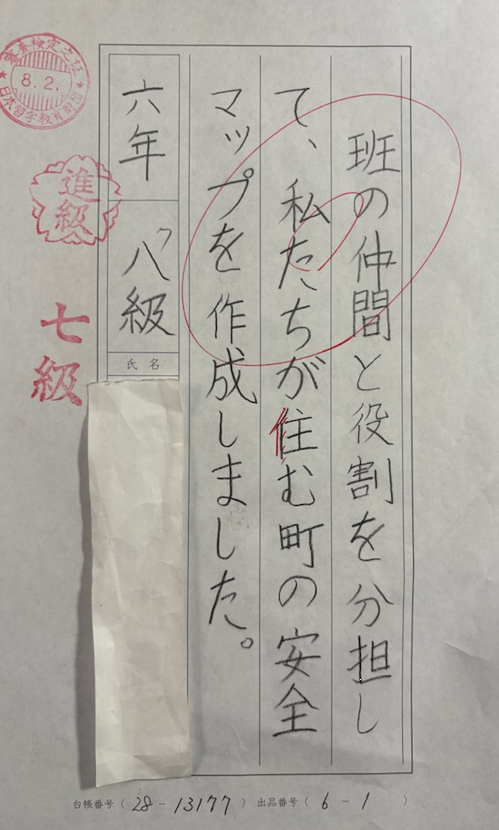 班の仲間と役割を分担し
て、私たちが住む町の安全
マップを作成しました。
六年 八級
氏名
進級
七級
8.2.
日本習字教育財団
台帳番号（28-13177） 出品番号（6-1）